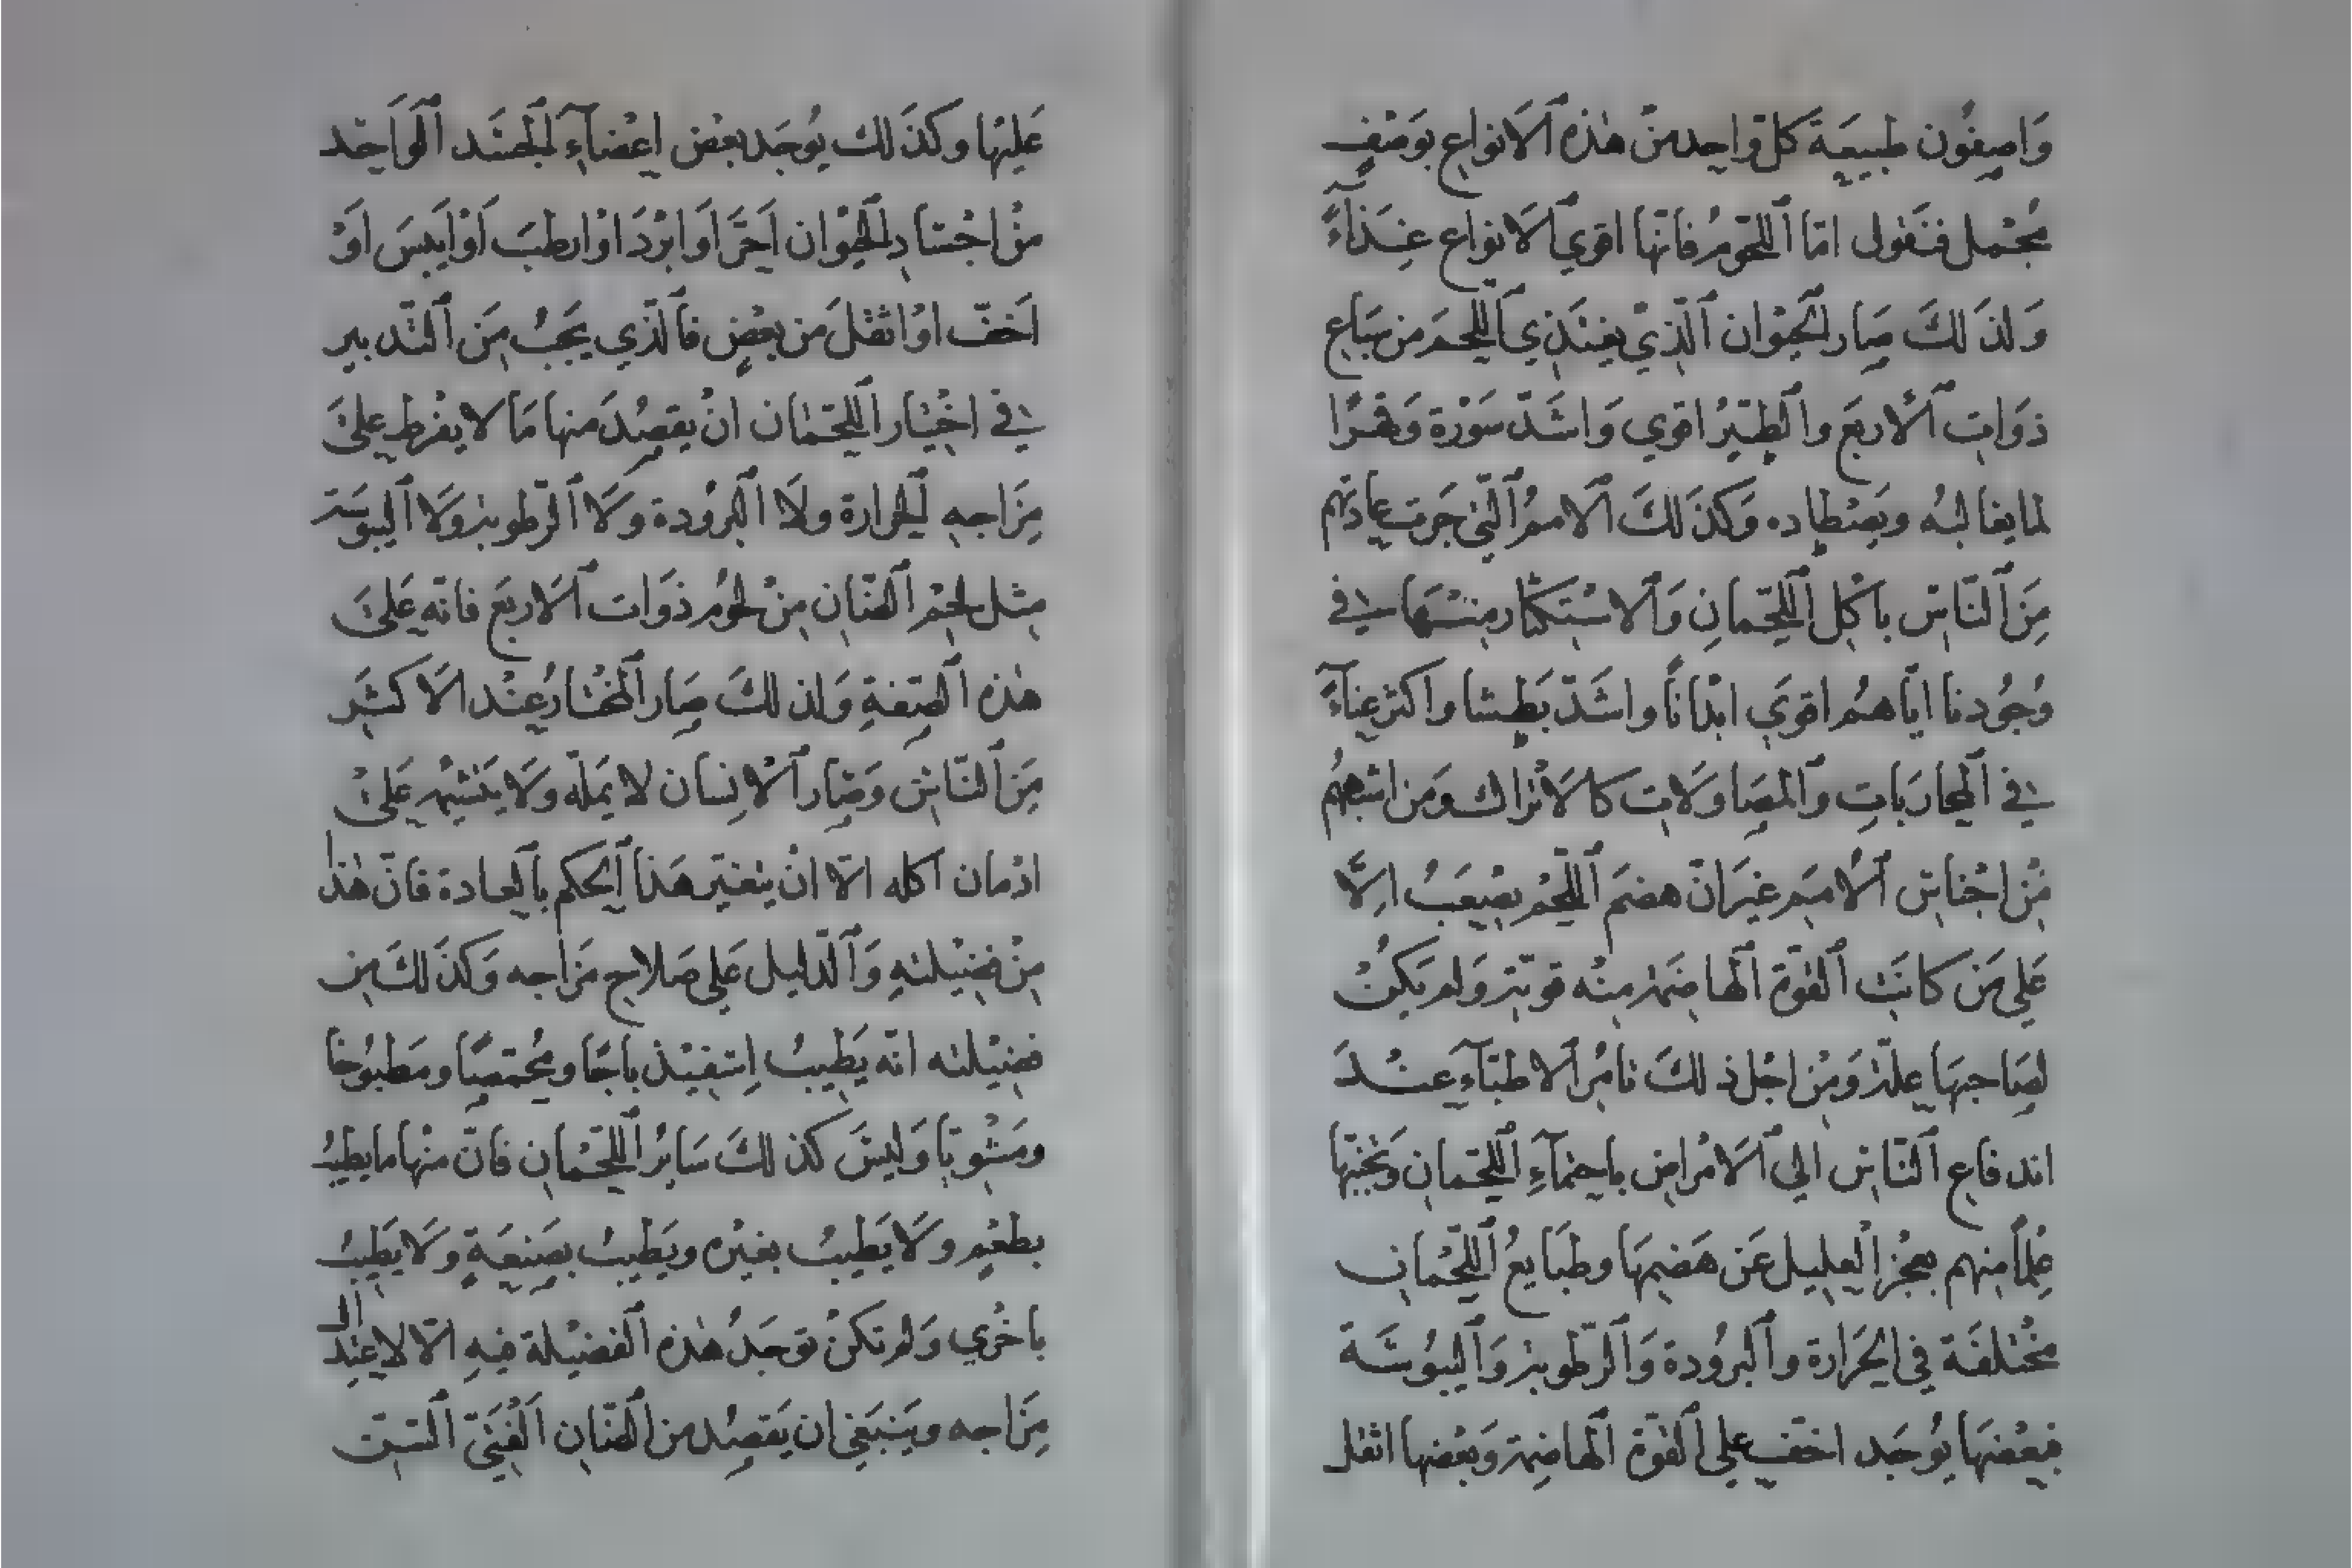 وَاصِفُون طَبيعَةَ كلّ وَاحِد مِنْ هٰذه اَلانواعِ بوَصْفٍ
مُجْمل فنَقول امّا اللّحُومُ فانّها اقوي اَلانواع غِذَآءً
وَلذَلكَ صَار الحَيْوان الّذِيْ يغتَذِي اللّحمَ من سِبَاع
ذوَاتِ اْلاربَع والطّيْرُ اقوي وَاشَدّ سَوْرة وَقهرًا
لما يغالبُه ويَصْطاده وَكذَلكَ اَلاممُ الّتي جَرت عادتهم
مِنَ النّاسْ باكْل اللّحْمانِ وَالاسْتكثار منْهَا في
وُجُودنا ايّاهمُ اقوَي ابْدانًا واشَدّ بَطشا واكثر غنآءً
في المحارَباتِ وَالمصَاوَلاتِ كالاَتْراك وَمَن اشبههُم
مِنْ اجْناس اْلامَم غيرَ انّ هضمَ اللّحْم يصْعَبُ اِلّا
عَلي مَن كانَت القوّة الهاضَمة منْه قويّة وَلم يَكنْ
لصَاحبهَا علّة وَمِنْ اجْل ذلكَ تامُر الاطبّآءِ عنْدَ
اندفاع النّاس الي اَلامْراض باحتمآءِ اللّحْمان وَتجنّبها
عِلْماً منهم بعجْز العليل عَن هَضمِهَا وطبَايعُ اللّحْمان
مخْتلفَة في الحَرارة والبرُودة وَالرّطوبة وَاليبُوسَة
فبعْضهَا يُوجَد اخفّ علي القوّة الهاضمة وَبعْضها اثقل
عَليْها وكذَلك يُوجَد بعْض اعْضآءِ الجَسَد الوَاحِد
منْ اجْسَاد الحيْوان اَحَرَّ اَوابْرَدَ اوْارطبَ اَوْاَيبسَ اَوْ
اَخفّ اوْاثقلَ من بعْضٍ فالّذي يَجبُ مِن التّدبير
في اخْتيار اللّحْمان انْ يقصِدَ منها مَا لا يفْرط عليَ
مِزَاجهِ الحرارة ولَا البرُودة وَلا الرّطوبة وَلا اليبُوسَة
مثل لحْم الضّان مِنْ لحُوم ذوَات اَلاربَع فانّه عَليَ
هٰذه الصّفةِ وَلذلكَ صَار المخْتارُ عنْد الاكثَر
مِن النّاس وَصَار اْلاِنسان لا يَملّه وَلا يَنْشبه عَليْ
ادْمان اكله الّا انْ يتغيّر هَذا الحكم بالعادة فانّ هٰذا
مِنْ فضيْلتهِ وَالدّليل عَلي صَلاحِ مزَاجه وَكذَلكَ من
فضيْلته انّه يَطِيبُ اِسْفيْذباجًا ومُحْمصًا ومَطبُوخا
ومَشْويّا وَليسَ كذلكَ سَايرُ اللّحْمان فانّ منْها ما يَطيبُ
بطعْمٍ وَلا يَطيبُ بغيْره ويَطيبُ بصَنعَةٍ وَلا يَطيبُ
باخْري وَلم تكنْ توجَدُ هٰذه الفضيْلة فيهِ الّا لاعْتدال
مِزَاجه ويَنبَغي ان يَقصِد من الضّان الفتيّ السّمين